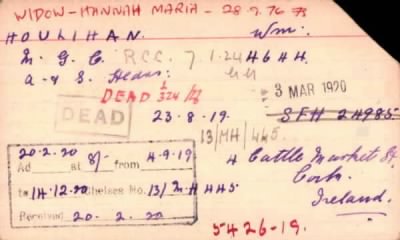 WIDOW - HANNAH MARIA - 28.9.76
HOULIHAN. Wm:
M. G. C. R.C.C. 7.1.24 4644
A. & S. Hdrs:
DEAD 1/324/
3 MAR 1920
DEAD
23-8-19.
SFH 24985.
13/MH/445.
20-2-20
Ad at 8/- from 4-9-19
to 14.12.20 Chelsea No. 13/M.H 445
Received 20. 2. 20
4 Cattle Market St.
Cork.
Ireland.
5426-19.